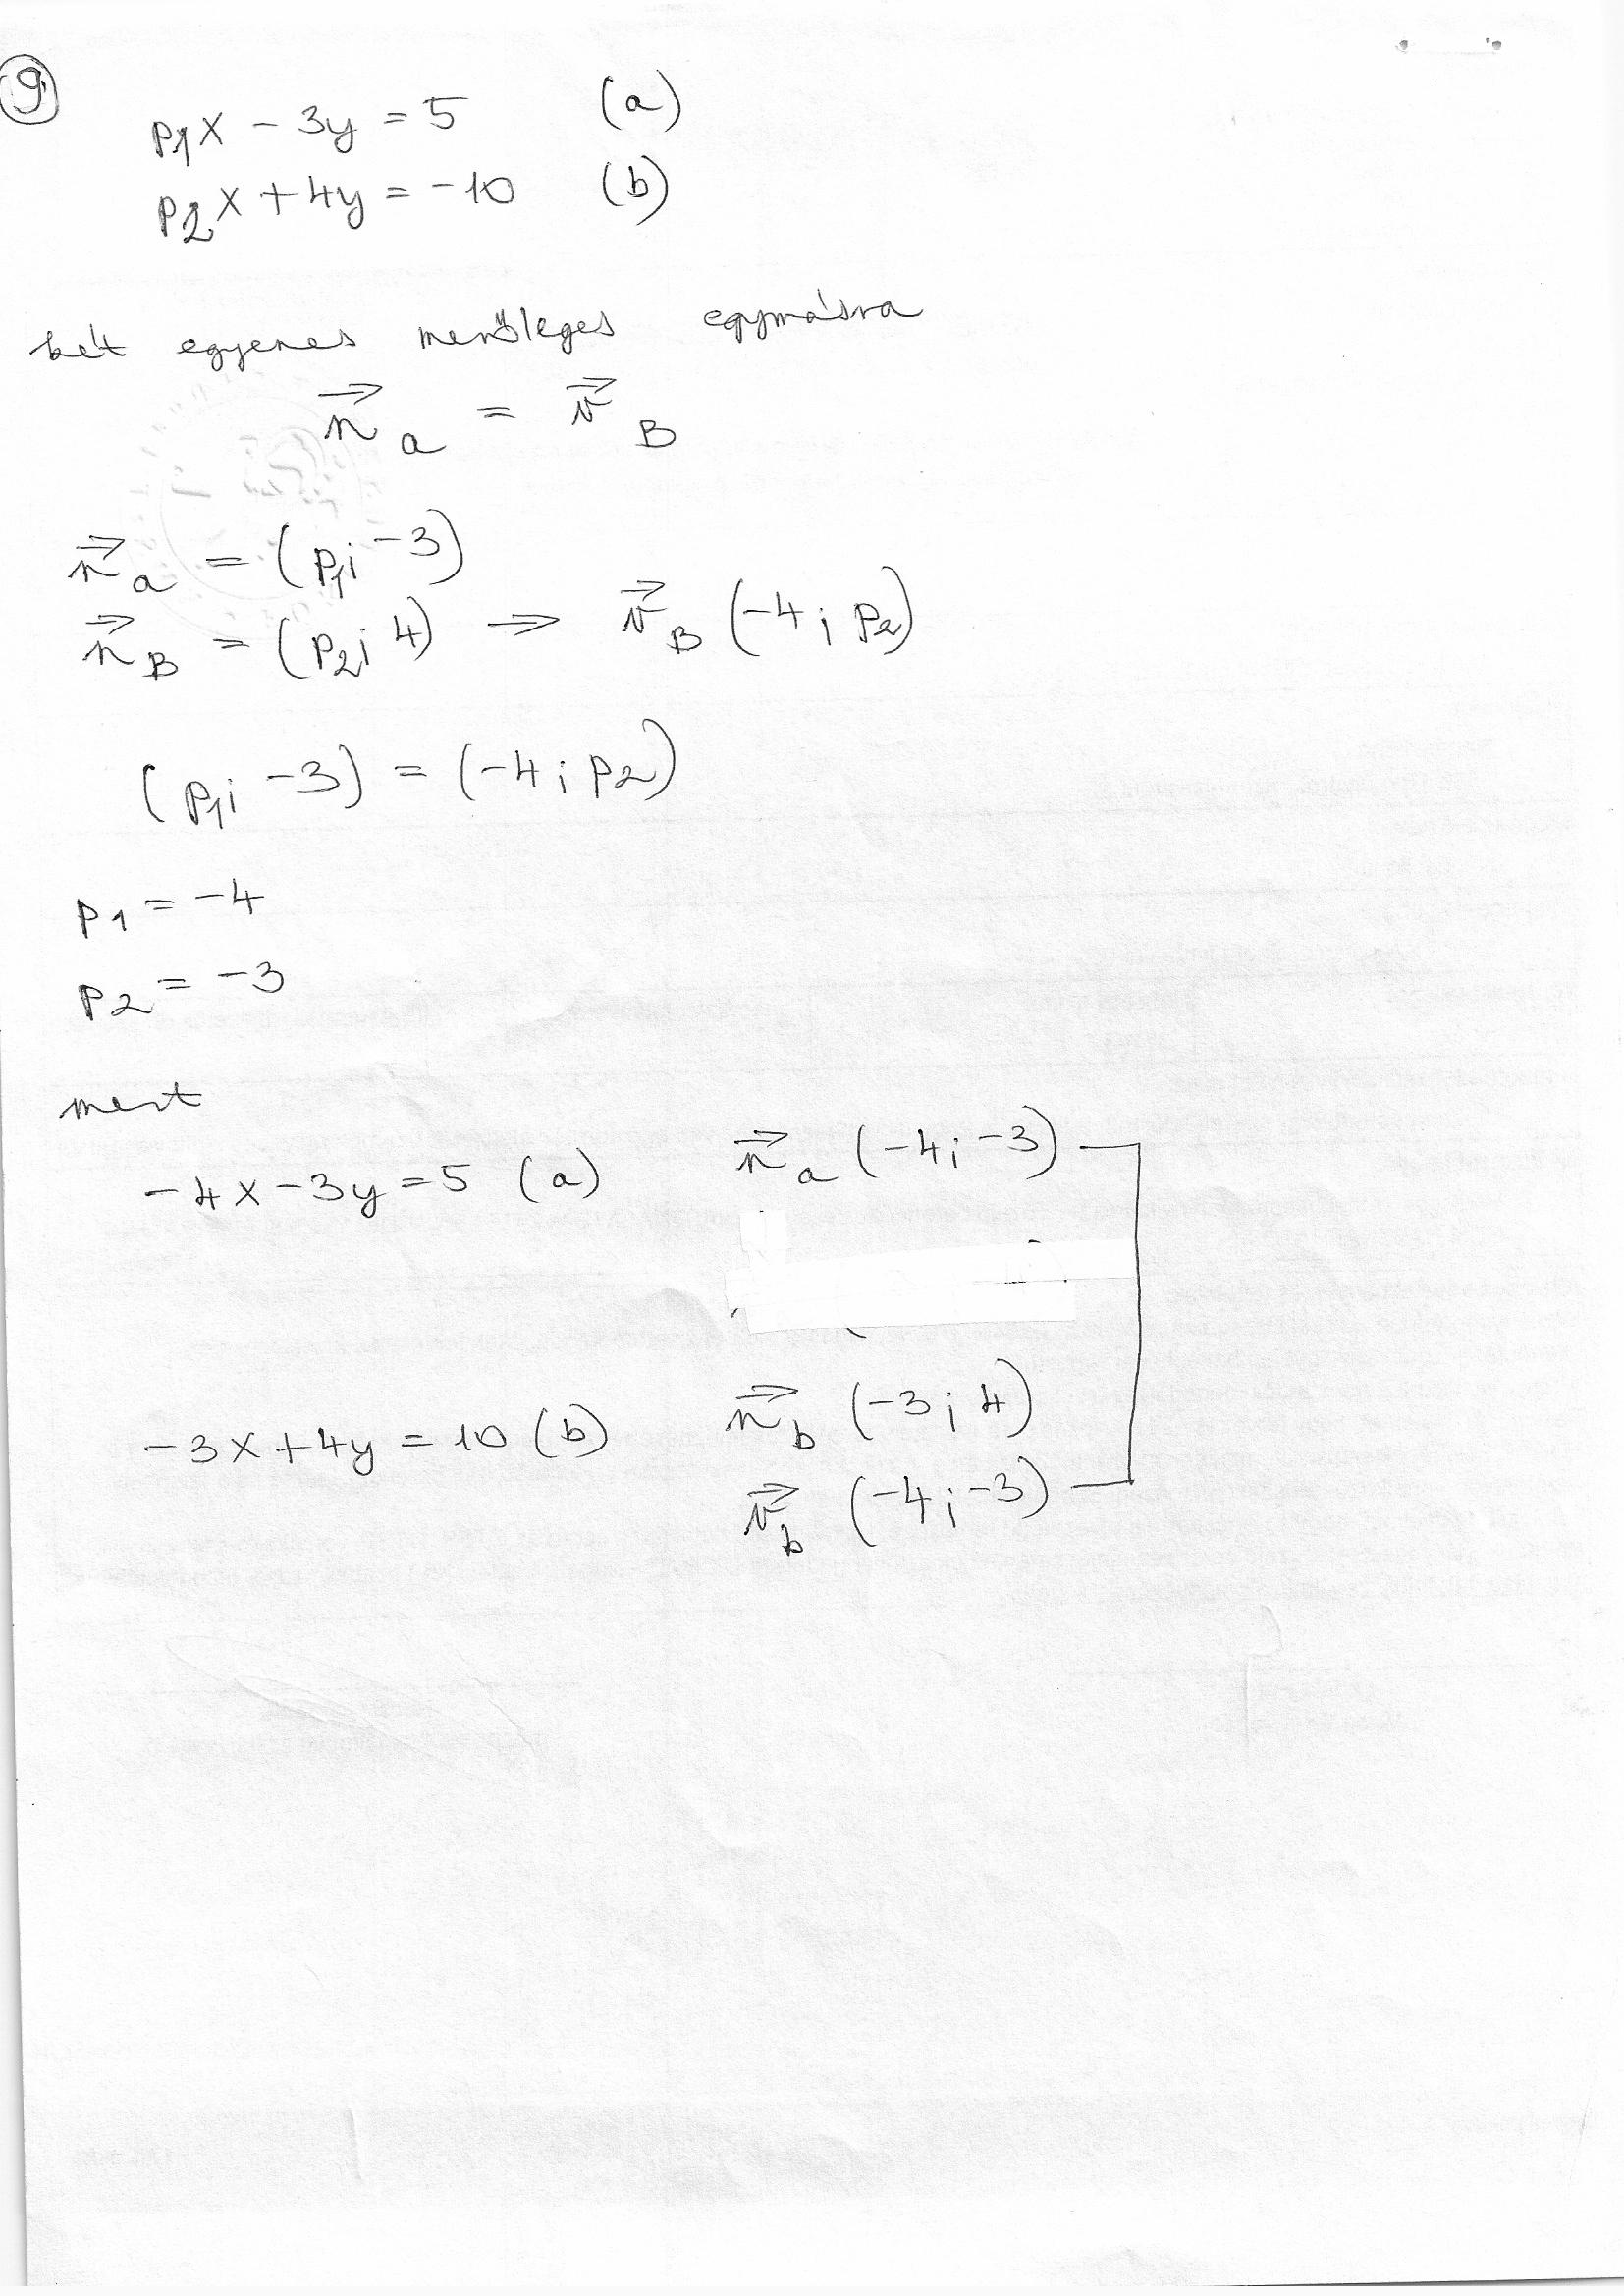 9
p1x - 3y = 5 (a)
p2x + 4y = -10 (b)
két egyenes merőleges egymásra
n⃗a = v⃗B
n⃗a = (p1; -3)
n⃗B = (p2; 4) ⇒ v⃗B (-4; p2)
(p1; -3) = (-4; p2)
p1 = -4
p2 = -3
mert
-4x - 3y = 5 (a) n⃗a (-4; -3)
-3x + 4y = 10 (b) n⃗b (-3; 4)
v⃗b (-4; -3)